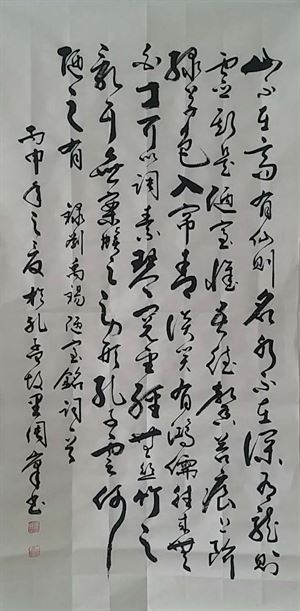 山不在高有仙则名水不在深有龙则
灵斯是陋室惟吾德馨苔痕上阶
绿草色入帘青谈笑有鸿儒往来无
白丁可以调素琴阅金经无丝竹之
乱耳无案牍之劳形孔子云何
陋之有 録劉禹锡陋室銘词一首
丙申年之夏於孔孟故里周章书